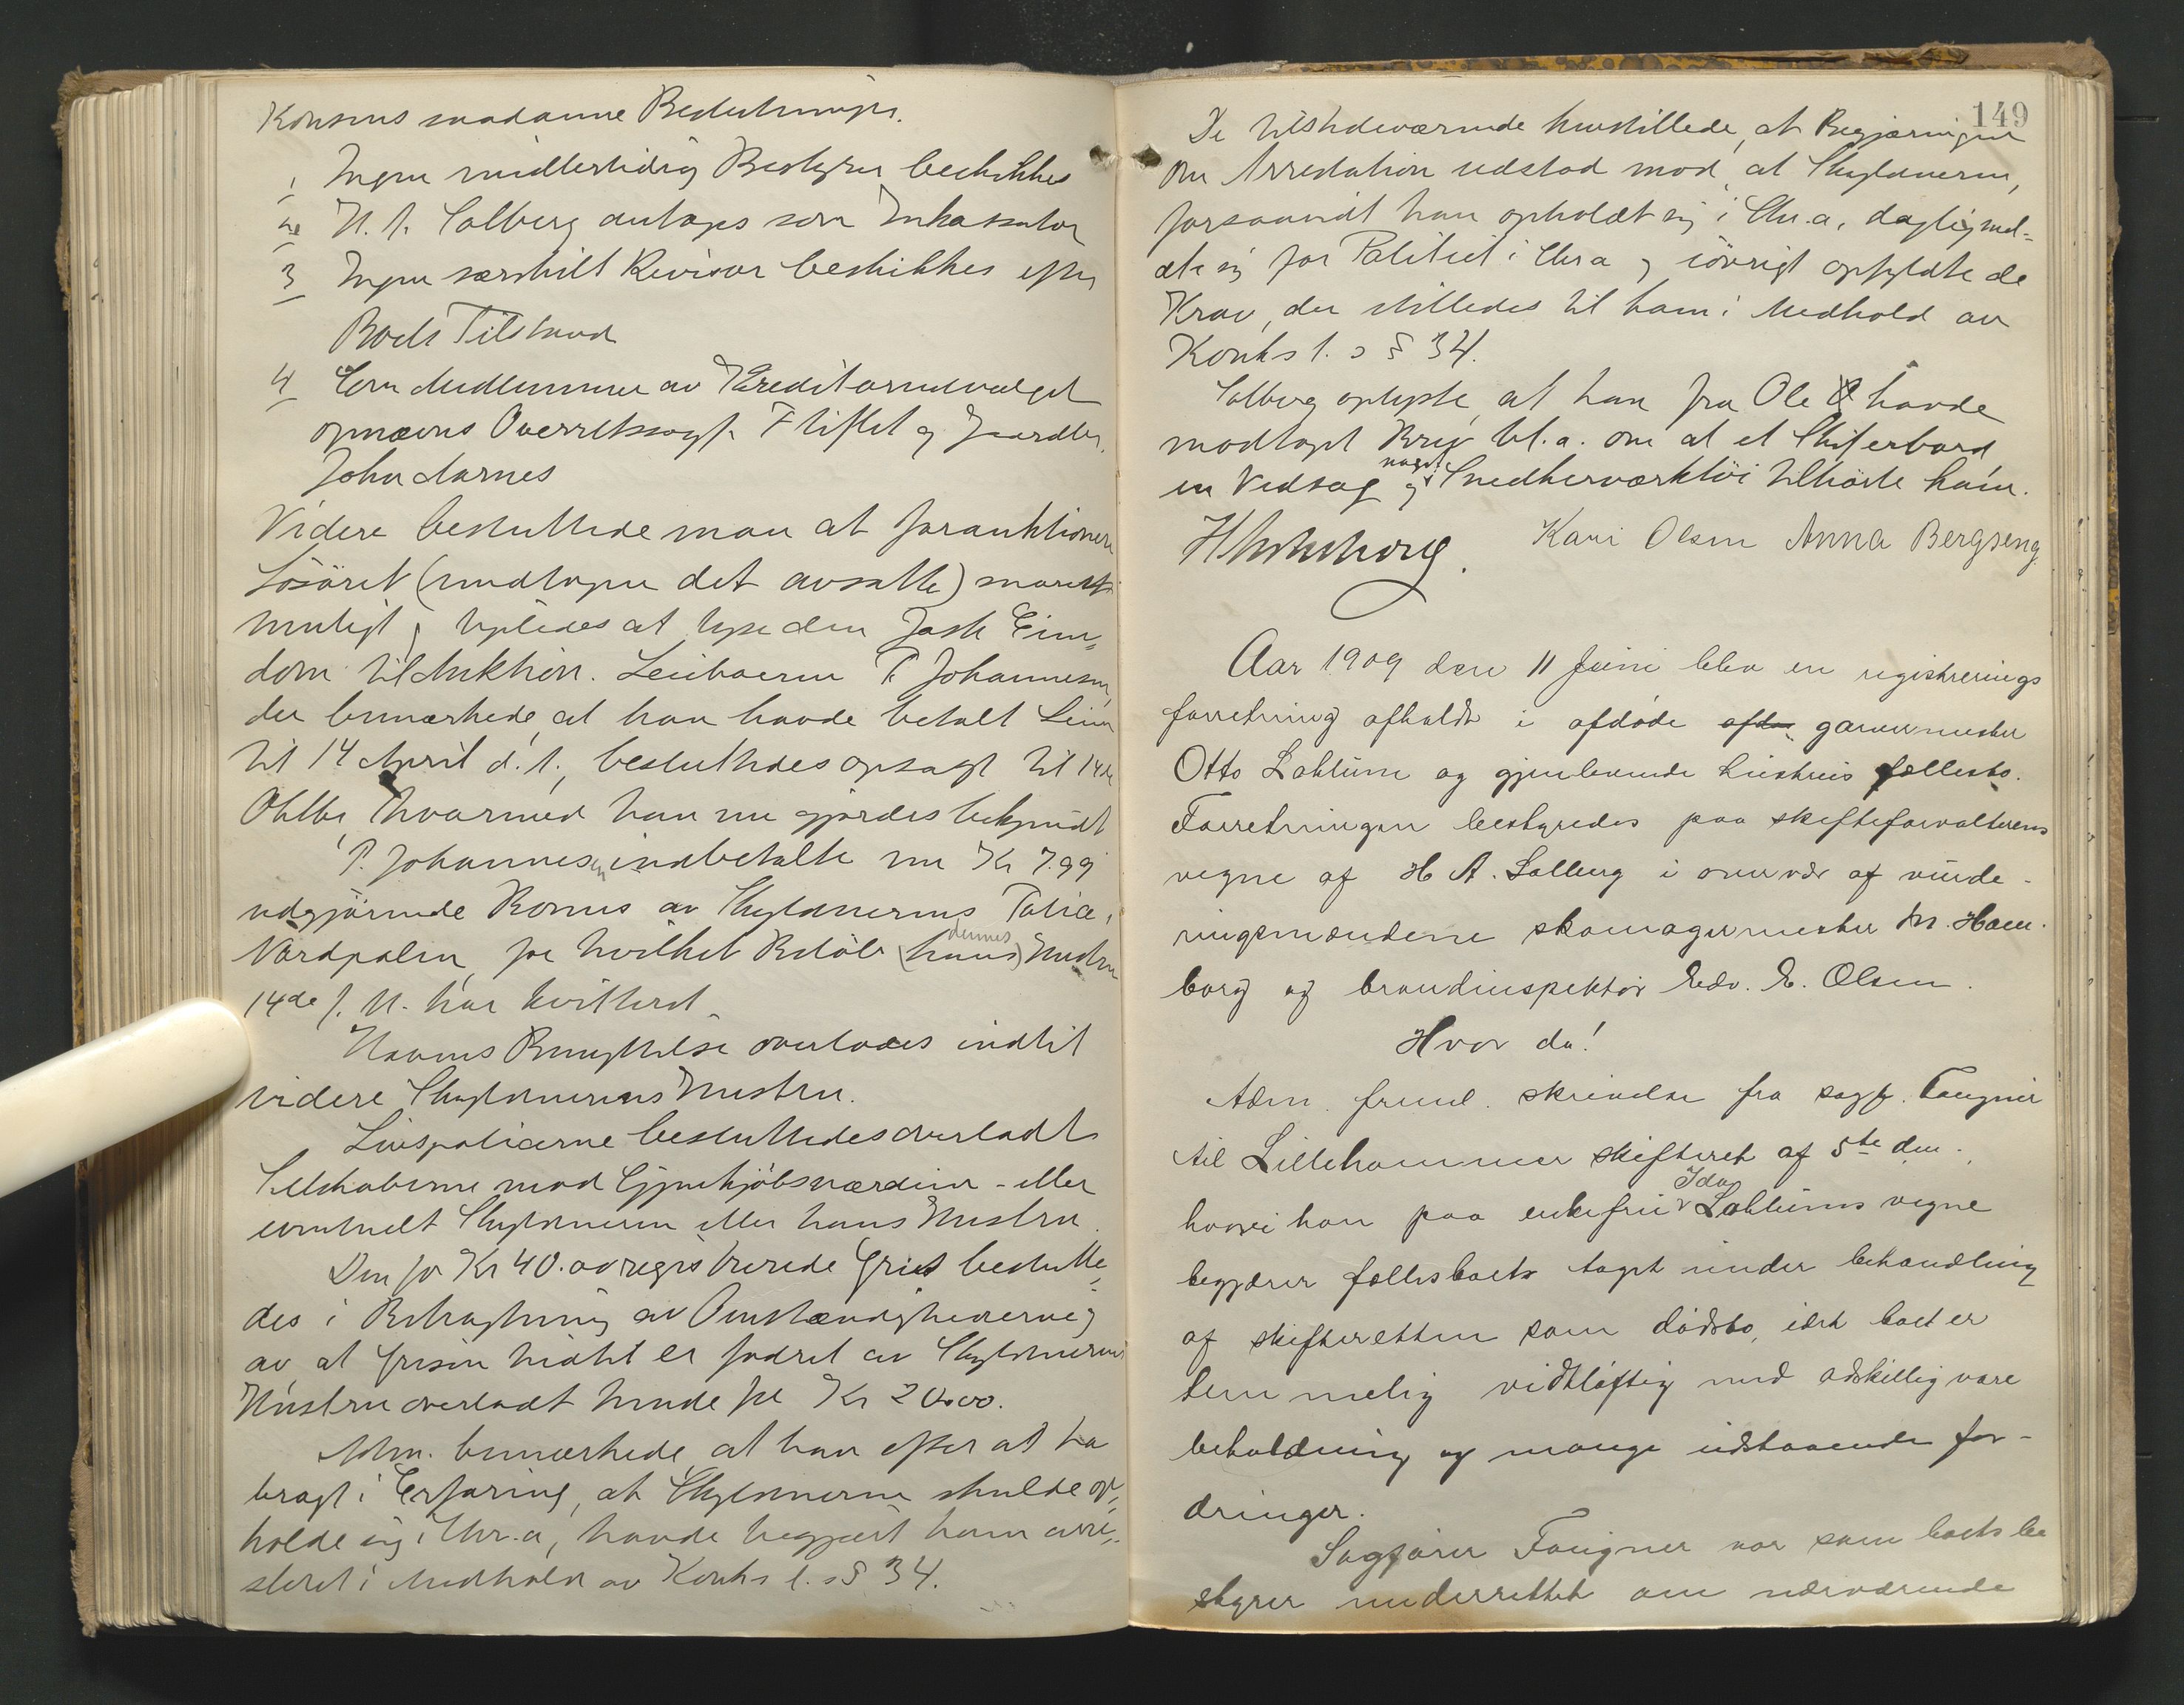 Konsens saadanne Beslutninger.
1 Ingen midlertidig Bestyrer beskikkes
2 H. A. Solberg antages som Inkassator
3 Ingen særskilt Revisor beskikkes efter
Boets Tilstand
4 Som Medlemmer av Kreditorudvalget
opnævnes Overretssagf. Fliflet og Gaardbr.
John Aarnes
Videre besluttede man at forauktionere
Løsøret (undtagen det avsatte) snarest
muligt og ligeledes at lyse den faste Eien-
dom til Auktion. Leieboeren P. Johannesen,
der bemærkede, at han havde betalt Leien
til 14 April d. A., besluttedes opsagt til 14de
Oktbr, hvormed han nu gjordes bekjendt
P. Johannesen indbetalte nu Kr 7.99
udgjørende Bonus av Skyldnerens Police i
Nordpolen, for hvilket Beløb (hans) dennes Hustru
14de f. M. har kvitteret
Havens Benyttelse overlodes indtil
videre Skyldnerens Hustru.
Livspolicerne besluttedes overladt
Selskaberne mod Gjenkjøbsværdien - eller
eventuelt Skyldneren eller hans Hustru.
Den for Kr 40. avregistrerede Gris beslutte-
des i Betragtning av Omstændighederne og
av at Grisen hidtil er fodret av Skyldnerens
Hustru overladt hende for Kr 20.00.
Adm. bemærkede, at han efter at ha
bragt i Erfaring, at Skyldneren skulde op-
holde sig i Chr.a, havde begjært ham arre-
steret i Medhold av Konks l.s § 34.
149
De tilstedeværende henstillede, at Begjæringen
om Arrestation udstod mod, at Skyldneren,
forsaavidt han opholdt sig i Chr.a, daglig mel-
dte sig for Politiet i Chr.a og iøvrigt opfyldte de
Krav, der stilledes til ham i Medhold av
Konks l.s § 34.
Solberg oplyste, at han fra Ole havde
modtaget Brev bl.a. om at et Skiferbord
en Vedsag og noget Snedkerværktøi tilhørte ham.
Kari Olsen Anna Bergseng
Aar 1909 den 11 Juni blev en registrerings
forretning afholdt i afdøde afdø garvermester
Otto Lohtüms og gjenlevende hustrus fællesbo.
Forretningen bestyredes paa skifteforvalterens
vegne af H A. Solberg i overvær af vurde-
ringsmændene skomagermester M. Ham-
borg og brandinspektør Edv. E. Olsen.
Hvor da!
Adm. freml. skrivelse fra sagf. Faugner
til Lillehammer skifteret af 5te dm.
hvori han paa enkefru Ida Lohtüms vegne
begjærer fællesboets taget under behandling
af skifteretten som dødsbo, idet boet er
temmelig vidtløftig med adskillig vare
beholdning og mange udstaaende for-
dringer.
Sagfører Faugner var som boets be
styrer underrettet om nærværende